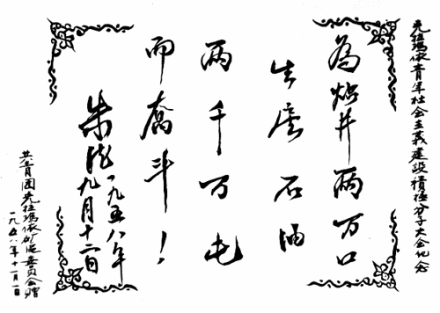 克拉瑪依青年社会主義建设積極分子大会纪念
為钻井两万口
生産石油
两千万吨
而奮斗！
朱德
一九五八年
九月十二日
共青团克拉瑪依矿区委员会赠
一九五八年十一月一日